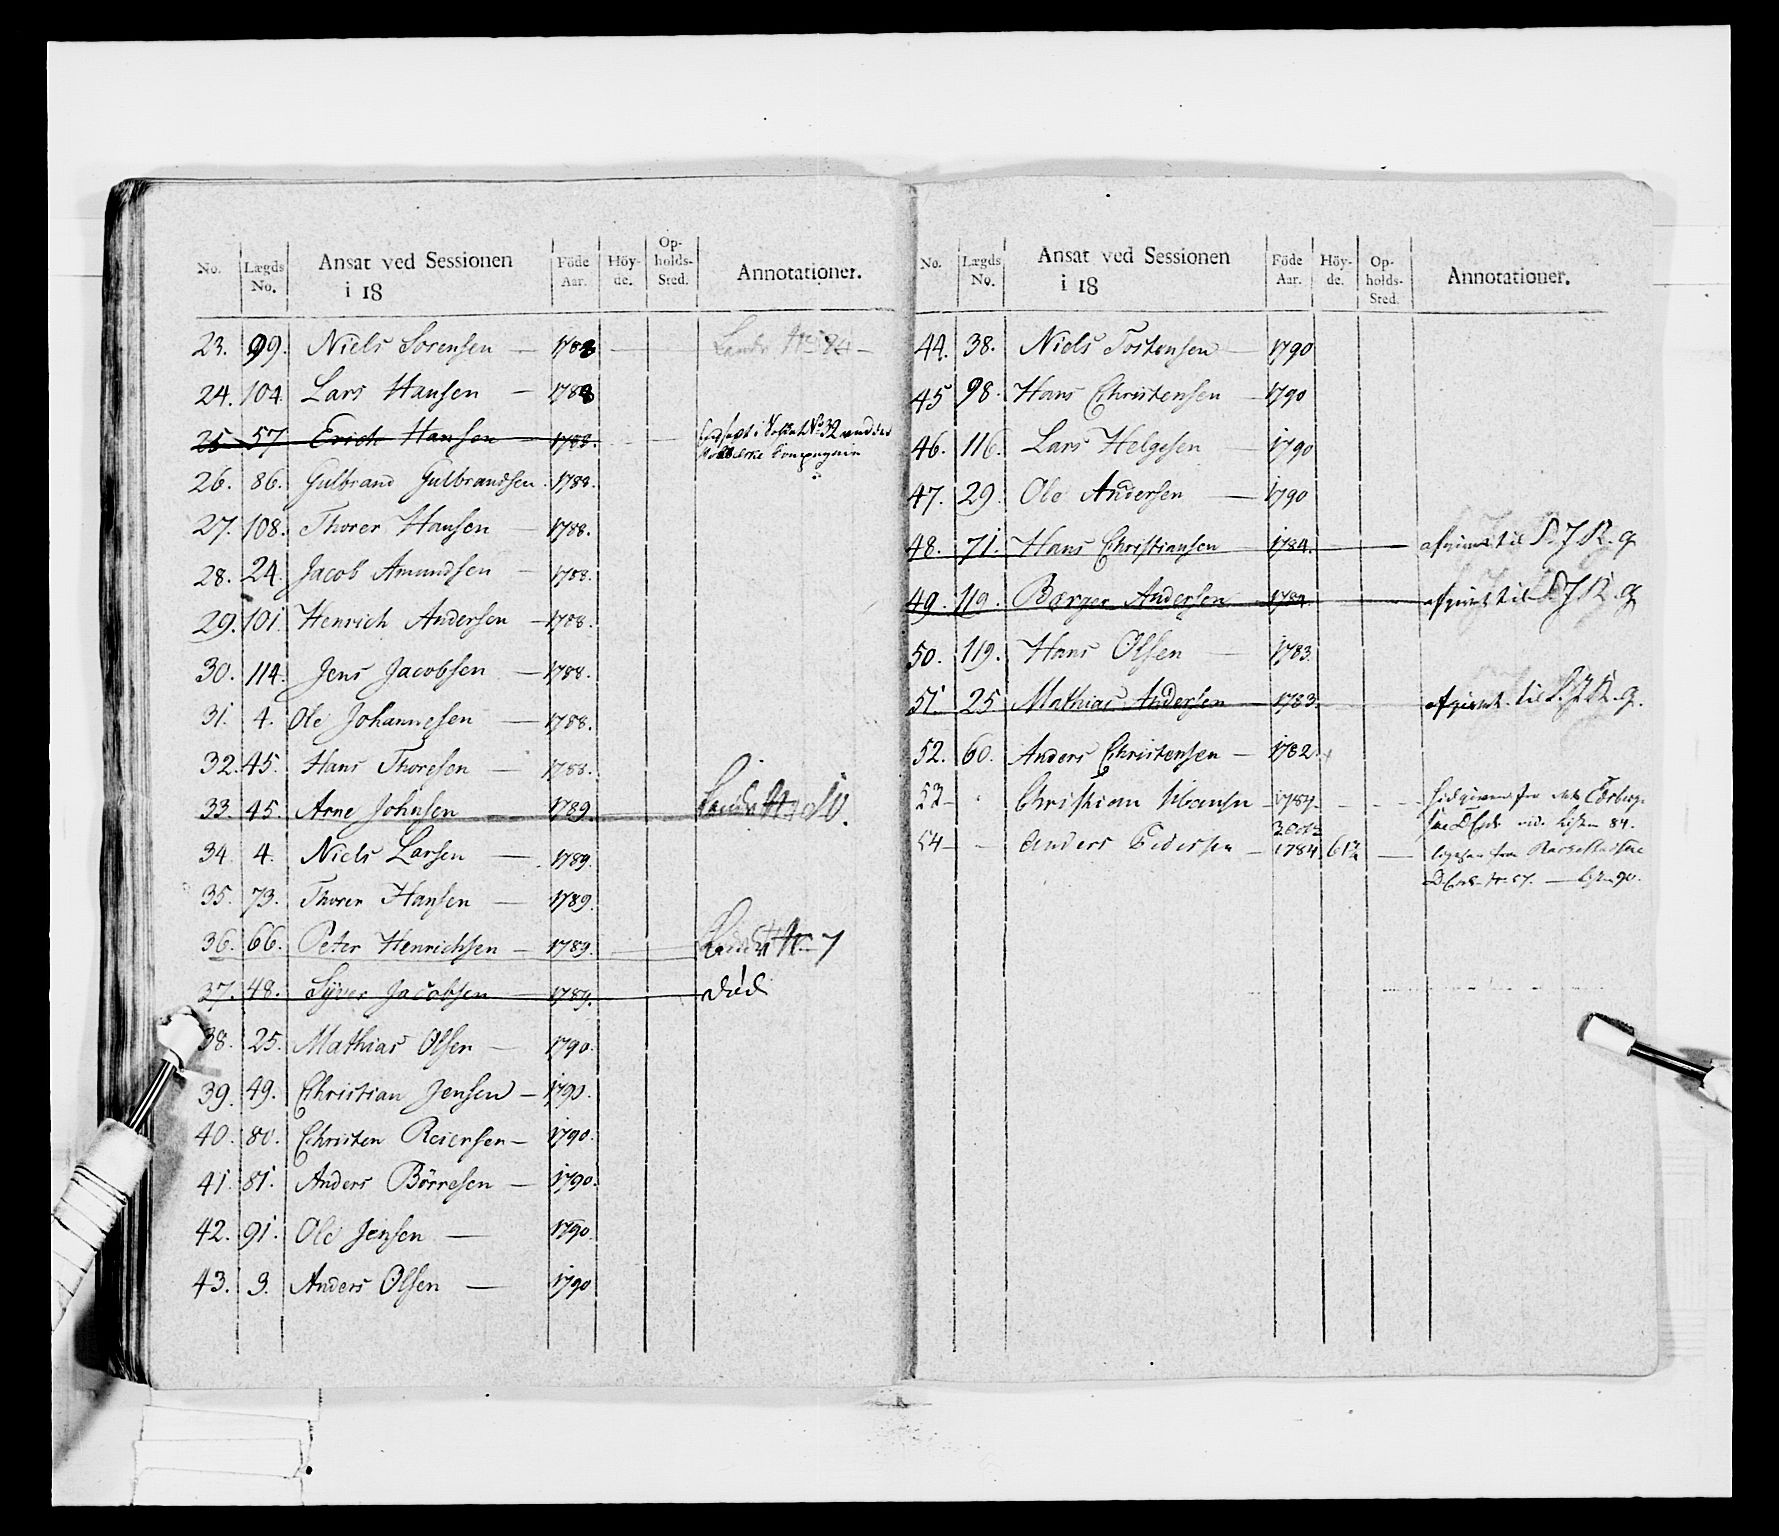 No. Lægds No. Ansat ved Sessionen i 18 Föde Aar. Höy-de. Op-holds-Sted. Annotationer.
23. 99. Niels Sörensen — 1788 —
24. 104. Lars Hansen — 1788
25 57 Erich Hansen 1788.
26. 86. Gulbrand Gulbrandsen. 1788.
27. 108. Thorer Hansen — 1788.
28. 24. Jacob Amundsen — 1788.
29. 101. Henrich Andersen — 1788.
30. 114. Jens Jacobsen — 1788.
31. 4. Ole Johannesen — 1788.
32. 45. Hans Thoresen — 1788.
33. 45. Arne Johnsen 1789
34. 4. Niels Larsen — 1789.
35. 73. Thorer Hansen — 1789.
36. 66. Peter Henrichsen — 1789.
37. 48. Syver Jacobsen 1789. död
38. 25. Mathias Olsen — 1790.
39. 49. Christian Jensen — 1790.
40. 80. Christen Reiersen — 1790.
41. 81. Anders Börresen — 1790.
42. 91. Ole Jensen — 1790.
43. 3. Anders Olsen — 1790
No. Lægds No. Ansat ved Sessionen i 18 Föde Aar. Höy-de. Op-holds-Sted. Annotationer.
44. 38. Niels Tostensen — 1790
45 98. Hans Christensen — 1790
46. 116. Lars Helgesen — 1790
47. 29. Ole Andersen — 1790
48. 71. Hans Christiansen 1784. til
49. 119. Borger Andersen 1784. til
50. 119. Hans Olsen — 1783.
51. 25 Mathias Andersen 1783. til
52. 60. Anders Christensen — 1782.
53 — Christian Hansen — 1787 —
54 — Anders Pedersen — 1784